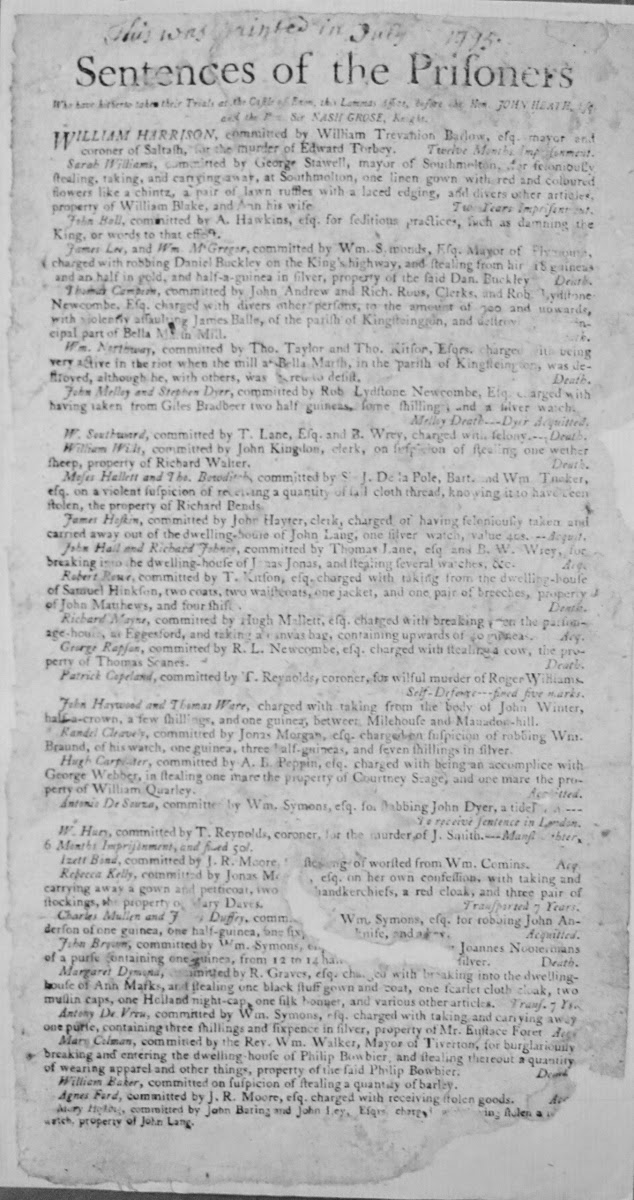 This was printed in July 1795.
Sentences of the Priſoners
Who have hitherto taken their Trials at the Caſtle of Exon, this Lammas Aſſize, before the Hon. JOHN HEATH,
and the Sir NASH GROSE, Knight.
WILLIAM HARRISON, committed by William Trevanion Barlow, eſq. mayor and
coroner of Saltaſh, for the murder of Edward Torbey. Twelve Months Impriſonment.
Sarah Williams, committed by George Stawell, mayor of Southmolton, for feloniouſly
ſtealing, taking, and carrying away, at Southmolton, one linen gown with red and coloured
flowers like a chintz, a pair of lawn ruffles with a laced edging, and divers other articles,
property of William Blake, and Ann his wife Two Years Impriſonment.
John Ball, committed by A. Hawkins, eſq. for ſeditious practices, ſuch as damning the
King, or words to that effect.
James Lee, and Wm. M'Gregor, committed by Wm. Symonds, Eſq. Mayor of Plymouth,
charged with robbing Daniel Buckley on the King's highway, and ſtealing from him 18 guineas
and an half in gold, and half-a-guinea in ſilver, property of the ſaid Dan. Buckley Death.
Thomas Campion, committed by John Andrew and Rich. Rous, Clerks, and Rob. Lydſtone
Newcombe, Eſq. charged with divers other perſons, to the amount of 200 and upwards,
with violently aſſaulting James Balle, of the pariſh of Kingſteington, and
cipal part of Bella Mill.
Wm. Northway, committed by Tho. Taylor and Tho. Kitſon, Eſqrs. charged being
very active in the riot when the mill at Bella Marſh, in the pariſh of Kingſteington, was de-
ſtroyed, although he, with others, was to deſiſt. Death.
John Melley and Stephen Dyer, committed by Rob. Lydſtone Newcombe, Eſq. charged with
having taken from Giles Bradbeer two half guineas, ſome ſhillings and a ſilver watch.
Melley Death---Dyer Acquitted.
W. Southward, committed by T. Lane, Eſq. and B. Wrey, charged with felony.---Death.
William Wilts, committed by John Kingdon, clerk, on ſuſpicion of ſtealing one wether
ſheep, property of Richard Walter. Death.
Moſes Hallett and Tho. Bowditch, committed by J. De la Pole, Bart. and Wm. Tucker,
eſq. on a violent ſuſpicion of receiving a quantity of ſail cloth thread, knowing it to have been
ſtolen, the property of Richard Bends.
James Hoſkin, committed by John Hayter, clerk, charged of having feloniouſly taken and
carried away out of the dwelling-houſe of John Lang, one ſilver watch, value 40s.
John Hall and Richard committed by Thomas Lane, eſq. and B. W. Wrey, for
breaking into the dwelling-houſe of Jonas, and ſtealing ſeveral watches, &c. Acq.
Robert Rowe, committed by T. Kitſon, eſq. charged with taking from the dwelling-houſe
of Samuel Hinkſon, two coats, two waiſtcoats, one jacket, and one pair of breeches, property
of John Matthews, and four Death.
Richard Mayne, committed by Hugh Mallett, eſq. charged with breaking open the parſon-
age-houſe, at Eggesford, and taking a canvas bag, containing upwards of guineas. Acq.
George Rapſon, committed by R. L. Newcombe, eſq. charged with ſtealing a cow, the pro-
perty of Thomas Scanes. Death.
Patrick Copeland, committed by T. Reynolds, coroner, for wilful murder of Roger Williams.
Self-Defence---fined five marks.
John Haywood and Thomas Ware, charged with taking from the body of John Winter,
half-a-crown, a few ſhillings, and one guinea, between Milehouſe and Manadon-hill.
Randel Cleavely, committed by Jonas Morgan, eſq. charged on ſuſpicion of robbing Wm.
Braund, of his watch, one guinea, three half-guineas, and ſeven ſhillings in ſilver.
Hugh Carpenter, committed by A. Peppin, eſq. charged with being an accomplice with
George Webber, in ſtealing one mare the property of Courtney Seage, and one mare the pro-
perty of William Quarley. Acquitted.
Antonio De Souza, committed by Wm. Symons, eſq. for ſtabbing John Dyer, a
To receive ſentence in London.
W. Hurs, committed by T. Reynolds, coroner, for the murder of J. Smith.---
6 Months Impriſonment, and fined 50l.
Izett Bond, committed by J. R. Moore of worſted from Wm. Comins. Acq.
Rebecca Kelly, committed by Jonas eſq. on her own confeſſion, with taking and
carrying away a gown and petticoat, two handkerchiefs, a red cloak, and three pair of
ſtockings, the property of Mary Daves. Tranſported 7 Years.
Charles Mullen and Duffry, Wm. Symons, eſq. for robbing John An-
derſon of one guinea, one half-guinea, one knife, and Acquitted.
John Bryant, committed by Wm. Symons, Joannes Nootermans
of a purſe containing one guinea, from 12 to 14 ſilver. Death.
Margaret Dymond, committed by R. Graves, eſq. charged with breaking into the dwelling-
houſe of Ann Marks, and ſtealing one black ſtuff gown and coat, one ſcarlet cloth cloak, two
muſlin caps, one Holland night-cap, one ſilk bonnet, and various other articles. Tranſ. 7 Yrs.
Antony De Vreu, committed by Wm. Symons, eſq. charged with taking and carrying away
one purſe, containing three ſhillings and ſixpence in ſilver, property of Mr. Euſtace Foret Acq.
Mary Colman, committed by the Rev. Wm. Walker, Mayor of Tiverton, for burglariouſly
breaking and entering the dwelling-houſe of Philip Bowbier, and ſtealing thereout a quantity
of wearing apparel and other things, property of the ſaid Philip Bowbier. Death
William Baker, committed on ſuſpicion of ſtealing a quantity of barley.
Agnes Ford, committed by J. R. Moore, eſq. charged with receiving ſtolen goods. Acq
Mary committed by John Baring and John Ley, Eſqrs. ſtolen a
watch, property of John Lang.